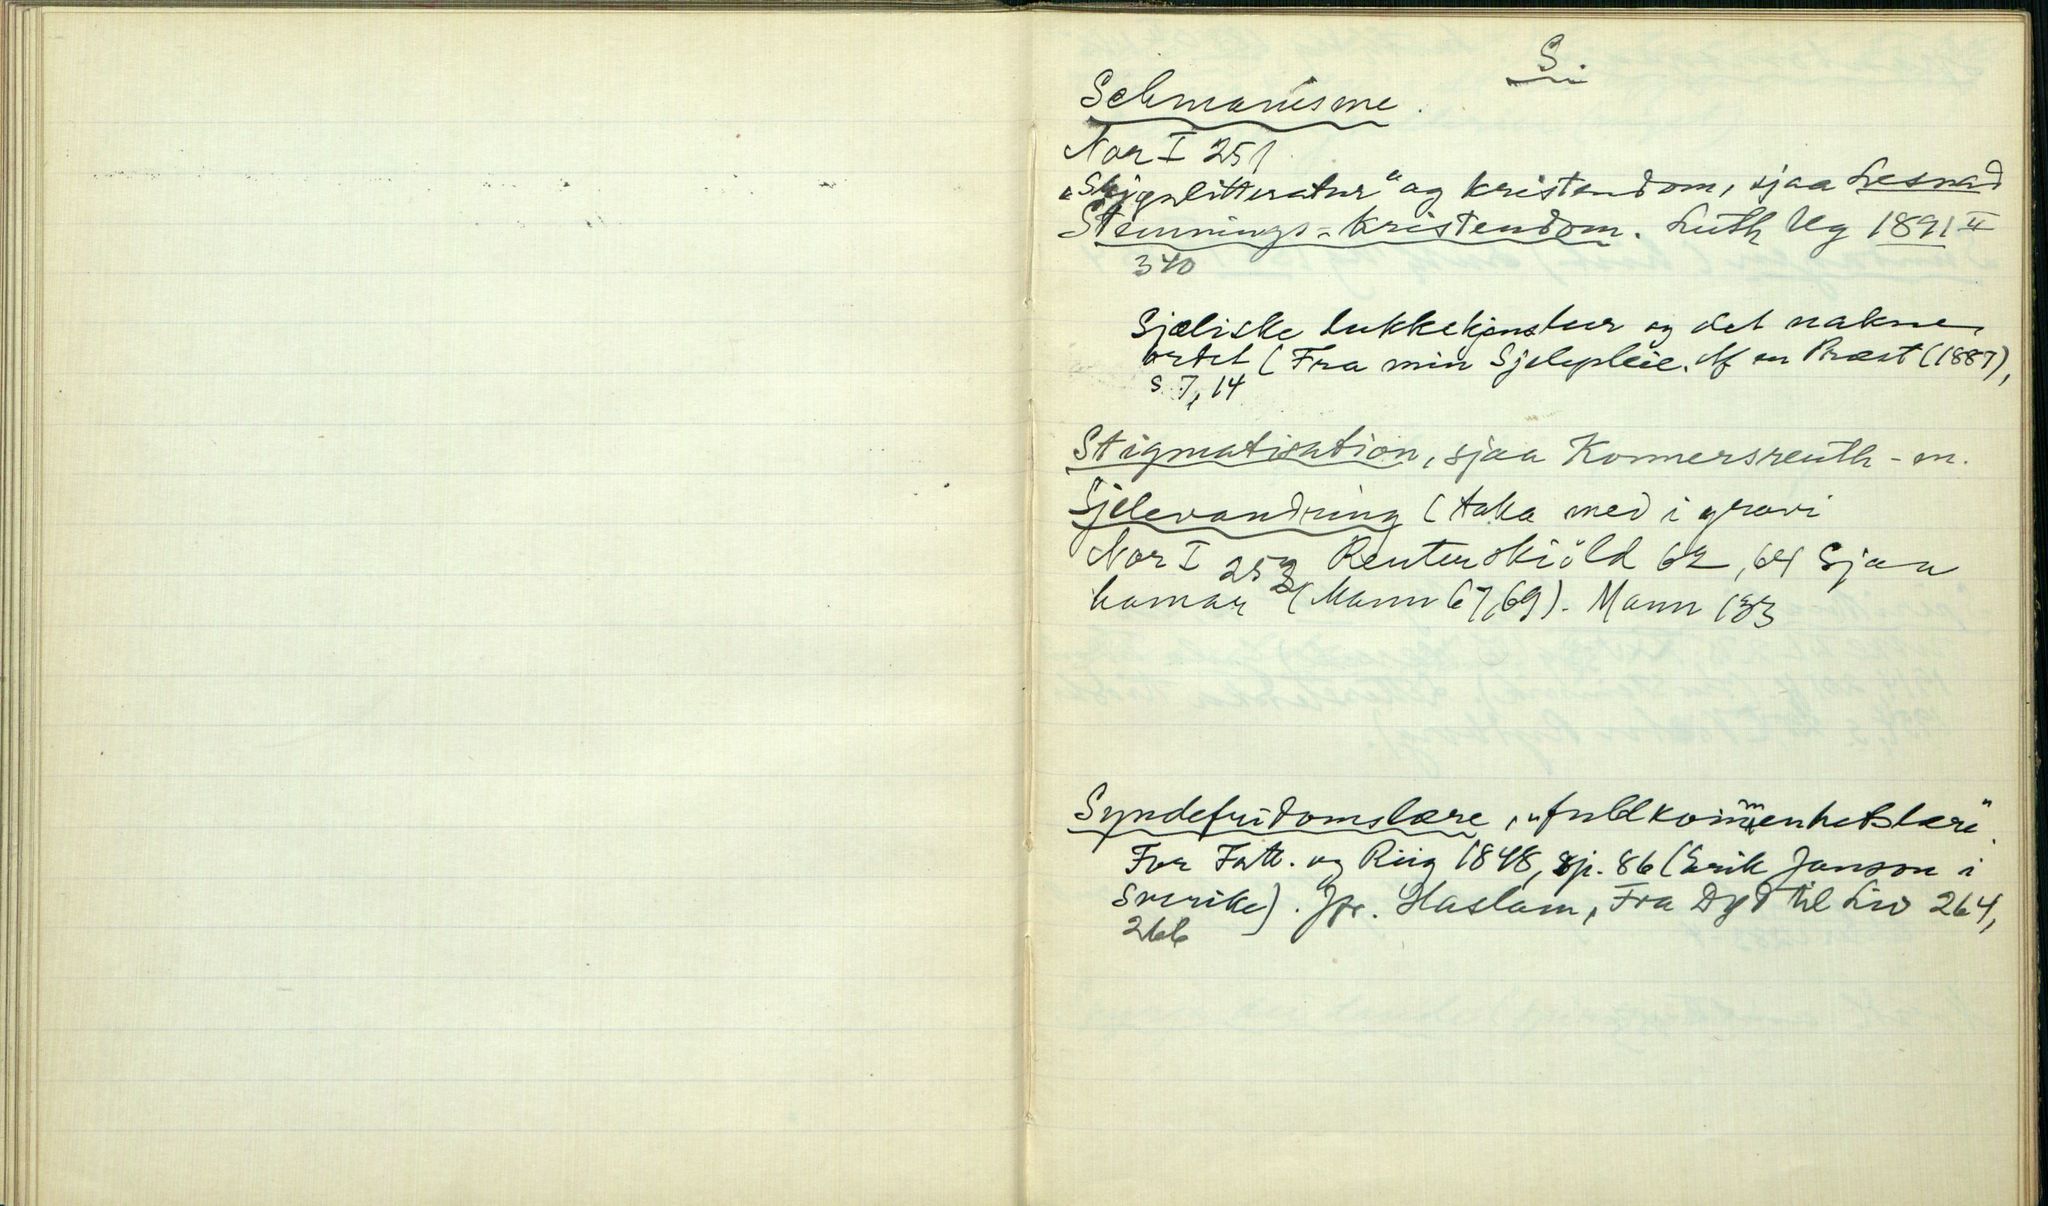 S.
Schmanisme.
Nor I 251
"Skjønlitteratur" og kristendom, sjaa Lesnad
Stemnings-kristendom. Luth Ug 1891 II
340
Sjæliske lukkekjenslur og det nakne
ordet (Fra min Sjelepleie. Af en Præst (1887),
s. 7, 14
Stigmatisation, sjaa Konnersreuth-m.
Sjelevandring (taka med i gravi
Nor I 253 Reuterskiöld 62, 64 Sjaa
hamar (Mann 67, 69). Mann 133
Syndefridomslære, "fuldkommenhetslære".
For Fatt. og Riig 1848, sp. 86 (Erik Janson i
Sverike). Jfr. Haslam, Fra Død til Liv 264,
266